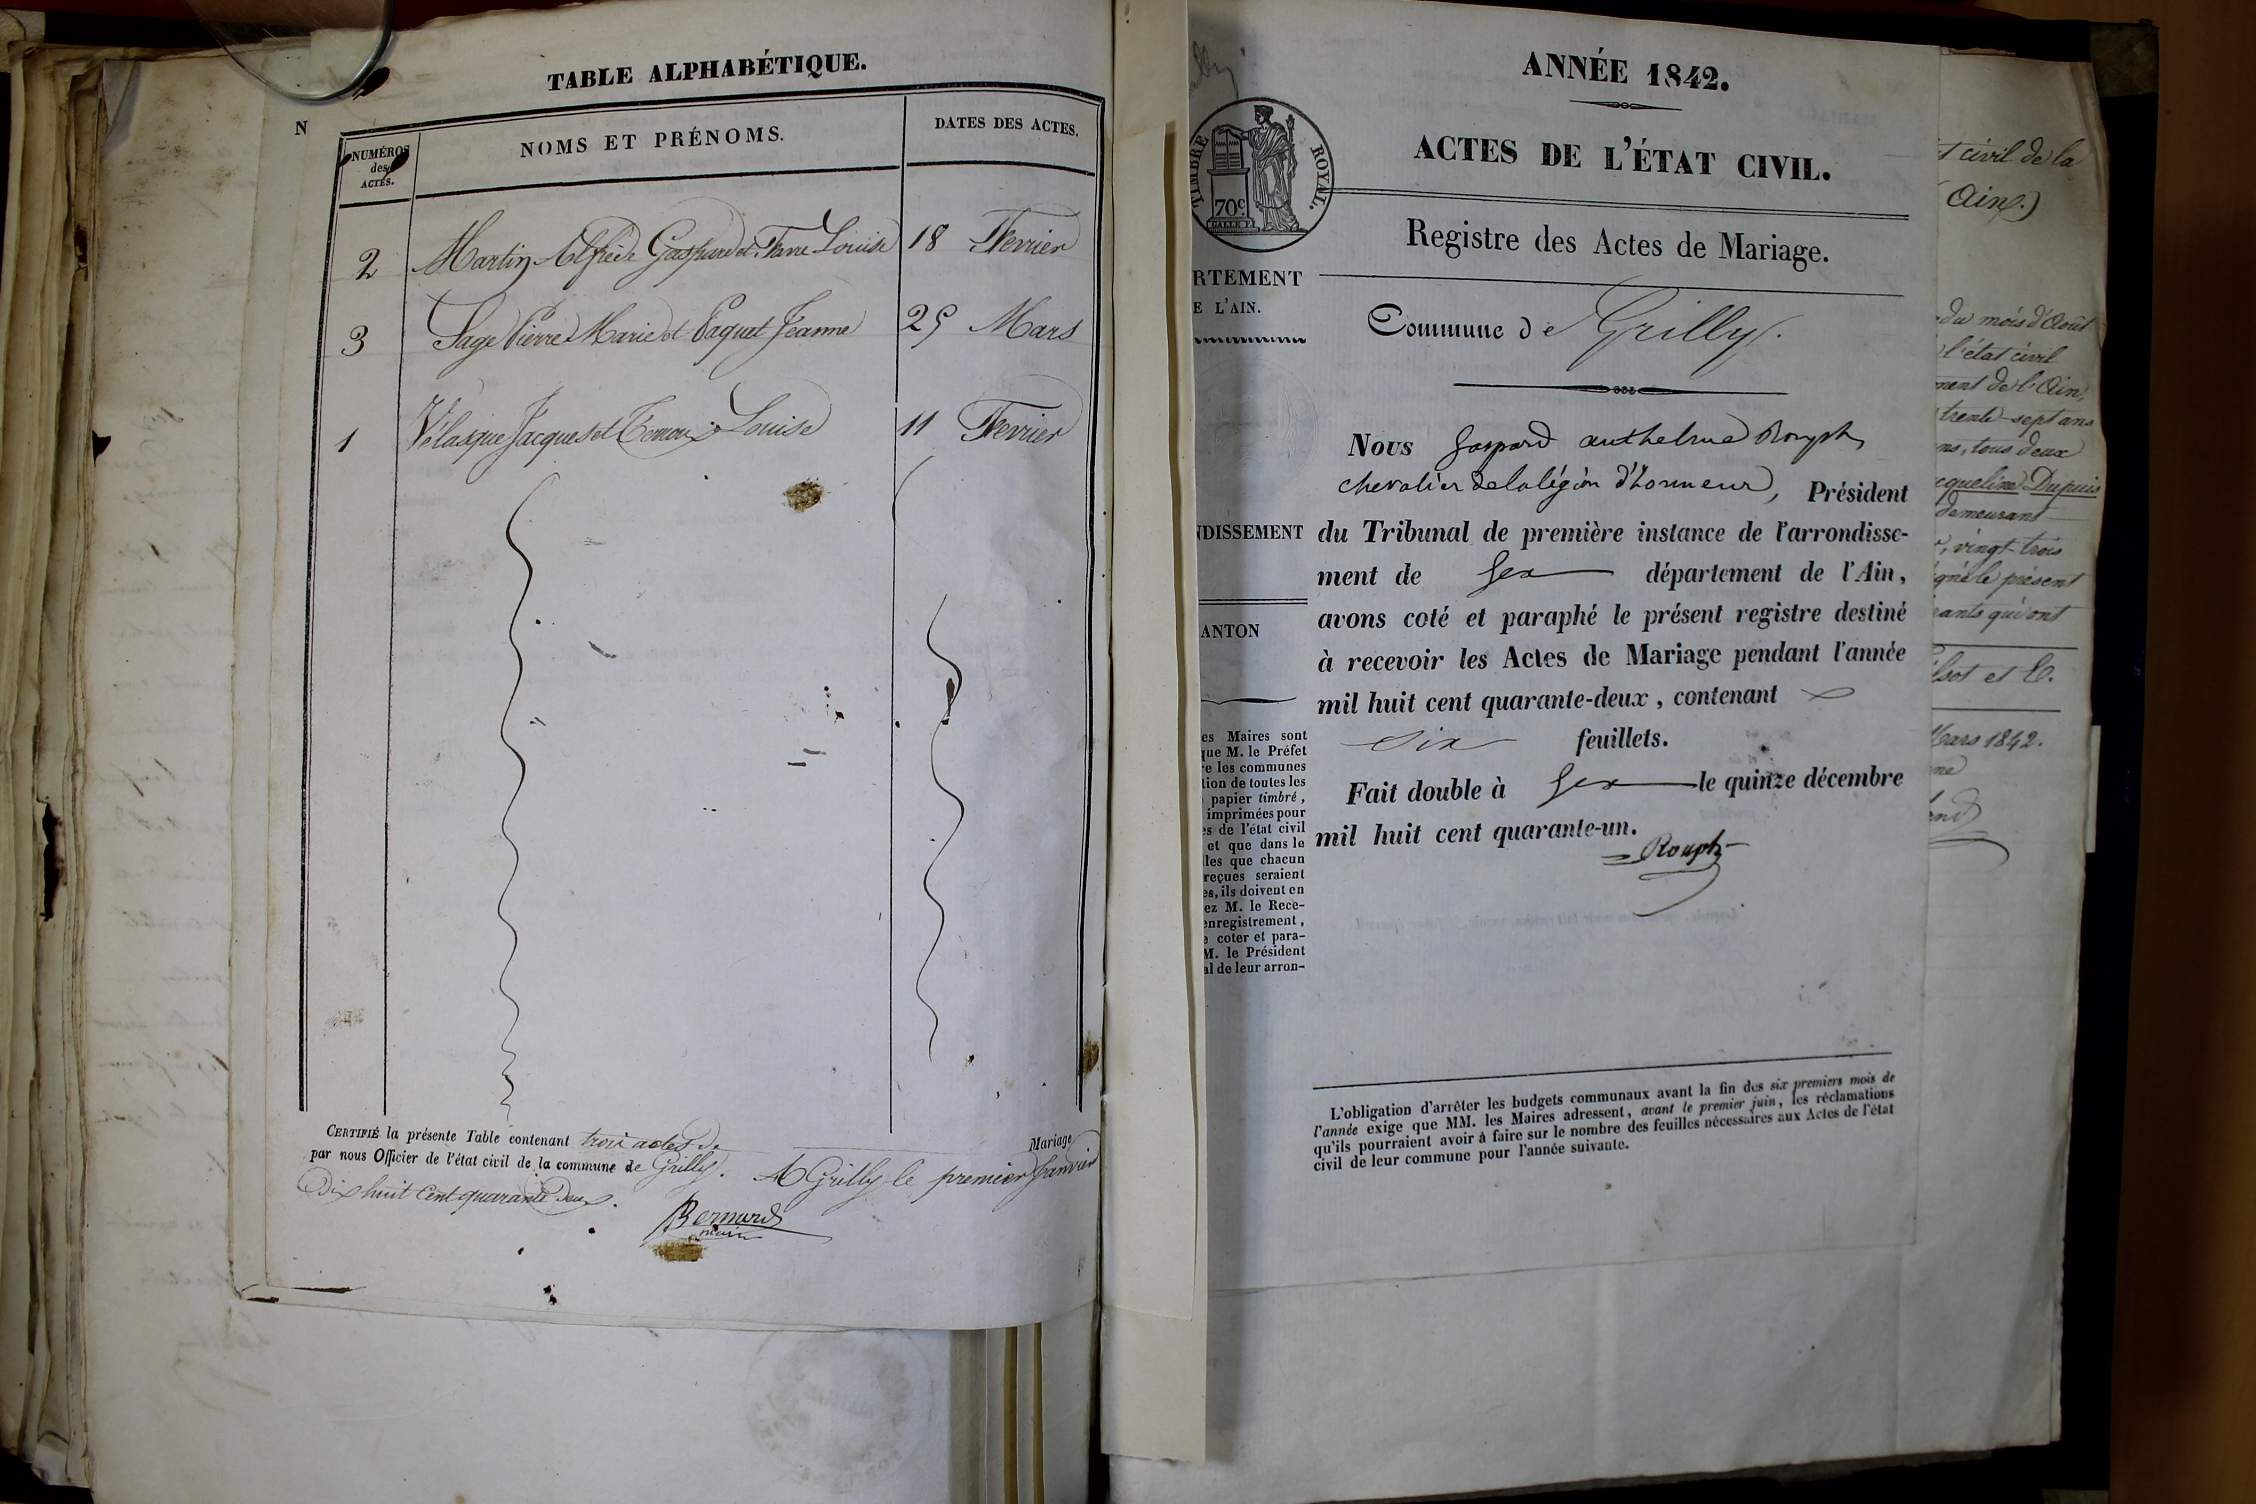 TABLE ALPHABÉTIQUE.
N
NUMÉROS des ACTES.
NOMS ET PRÉNOMS.
DATES DES ACTES.
2 Martin Alfred Gaspard et Louise 18 Fevrier
3 Sage Pierre Marie et Paquet Jeanne 25 Mars
1 Vélasque Jacques et Louise 11 Fevrier
CERTIFIÉ la présente Table contenant trois actes de Mariage
par nous Officier de l'état civil de la commune de Grilly. A Grilly le premier Janvier
Dix huit Cent quarante deux.
Bernard
maire
ANNÉE 1842.
ACTES DE L'ÉTAT CIVIL.
TIMBRE ROYAL.
70c
Registre des Actes de Mariage.
RTEMENT
E L'AIN.
Commune de Grilly.
NDISSEMENT
ANTON
Nous Gaspard anthelme Rouph
chevalier de la légion d'honneur, Président
du Tribunal de première instance de l'arrondisse-
ment de Gex département de l'Ain,
avons coté et paraphé le présent registre destiné
à recevoir les Actes de Mariage pendant l'année
mil huit cent quarante-deux, contenant
six feuillets.
Fait double à Gex le quinze décembre
mil huit cent quarante-un.
Rouph
es Maires sont
que M. le Préfet
re les communes
tion de toutes les
papier timbré,
imprimées pour
es de l'état civil
et que dans le
lles que chacun
reçues seraient
es, ils doivent en
ez M. le Rece-
enregistrement,
e coter et para-
M. le Président
al de leur arron-
L'obligation d'arrêter les budgets communaux avant la fin des six premiers mois de
l'année exige que MM. les Maires adressent, avant le premier juin, les réclamations
qu'ils pourraient avoir à faire sur le nombre des feuilles nécessaires aux Actes de l'état
civil de leur commune pour l'année suivante.
t civil de la
(Ain.)
du mois d'Août
l'état civil
ment de l'Ain,
trente-sept ans
ns, tous deux
cqueline Dupuis
demeurant
vingt-trois
igné le présent
rants qui ont
lsot et C.
Mars 1842.